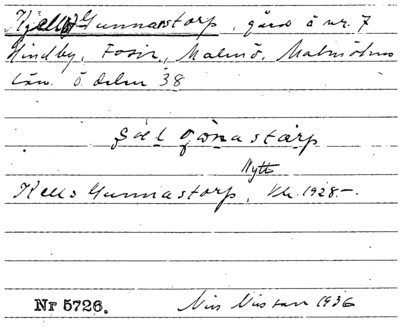 Kjells Gunnarstorp, gård å nr. 7
Hindby, Fosie, Malmö, Malmöhus
län. ö. delen 38
şɛ̀l gònastàrp
Nytt
Kells Gunnastorp, Vk. 1928.-
Nr 5726. Nils Nilsson 1936